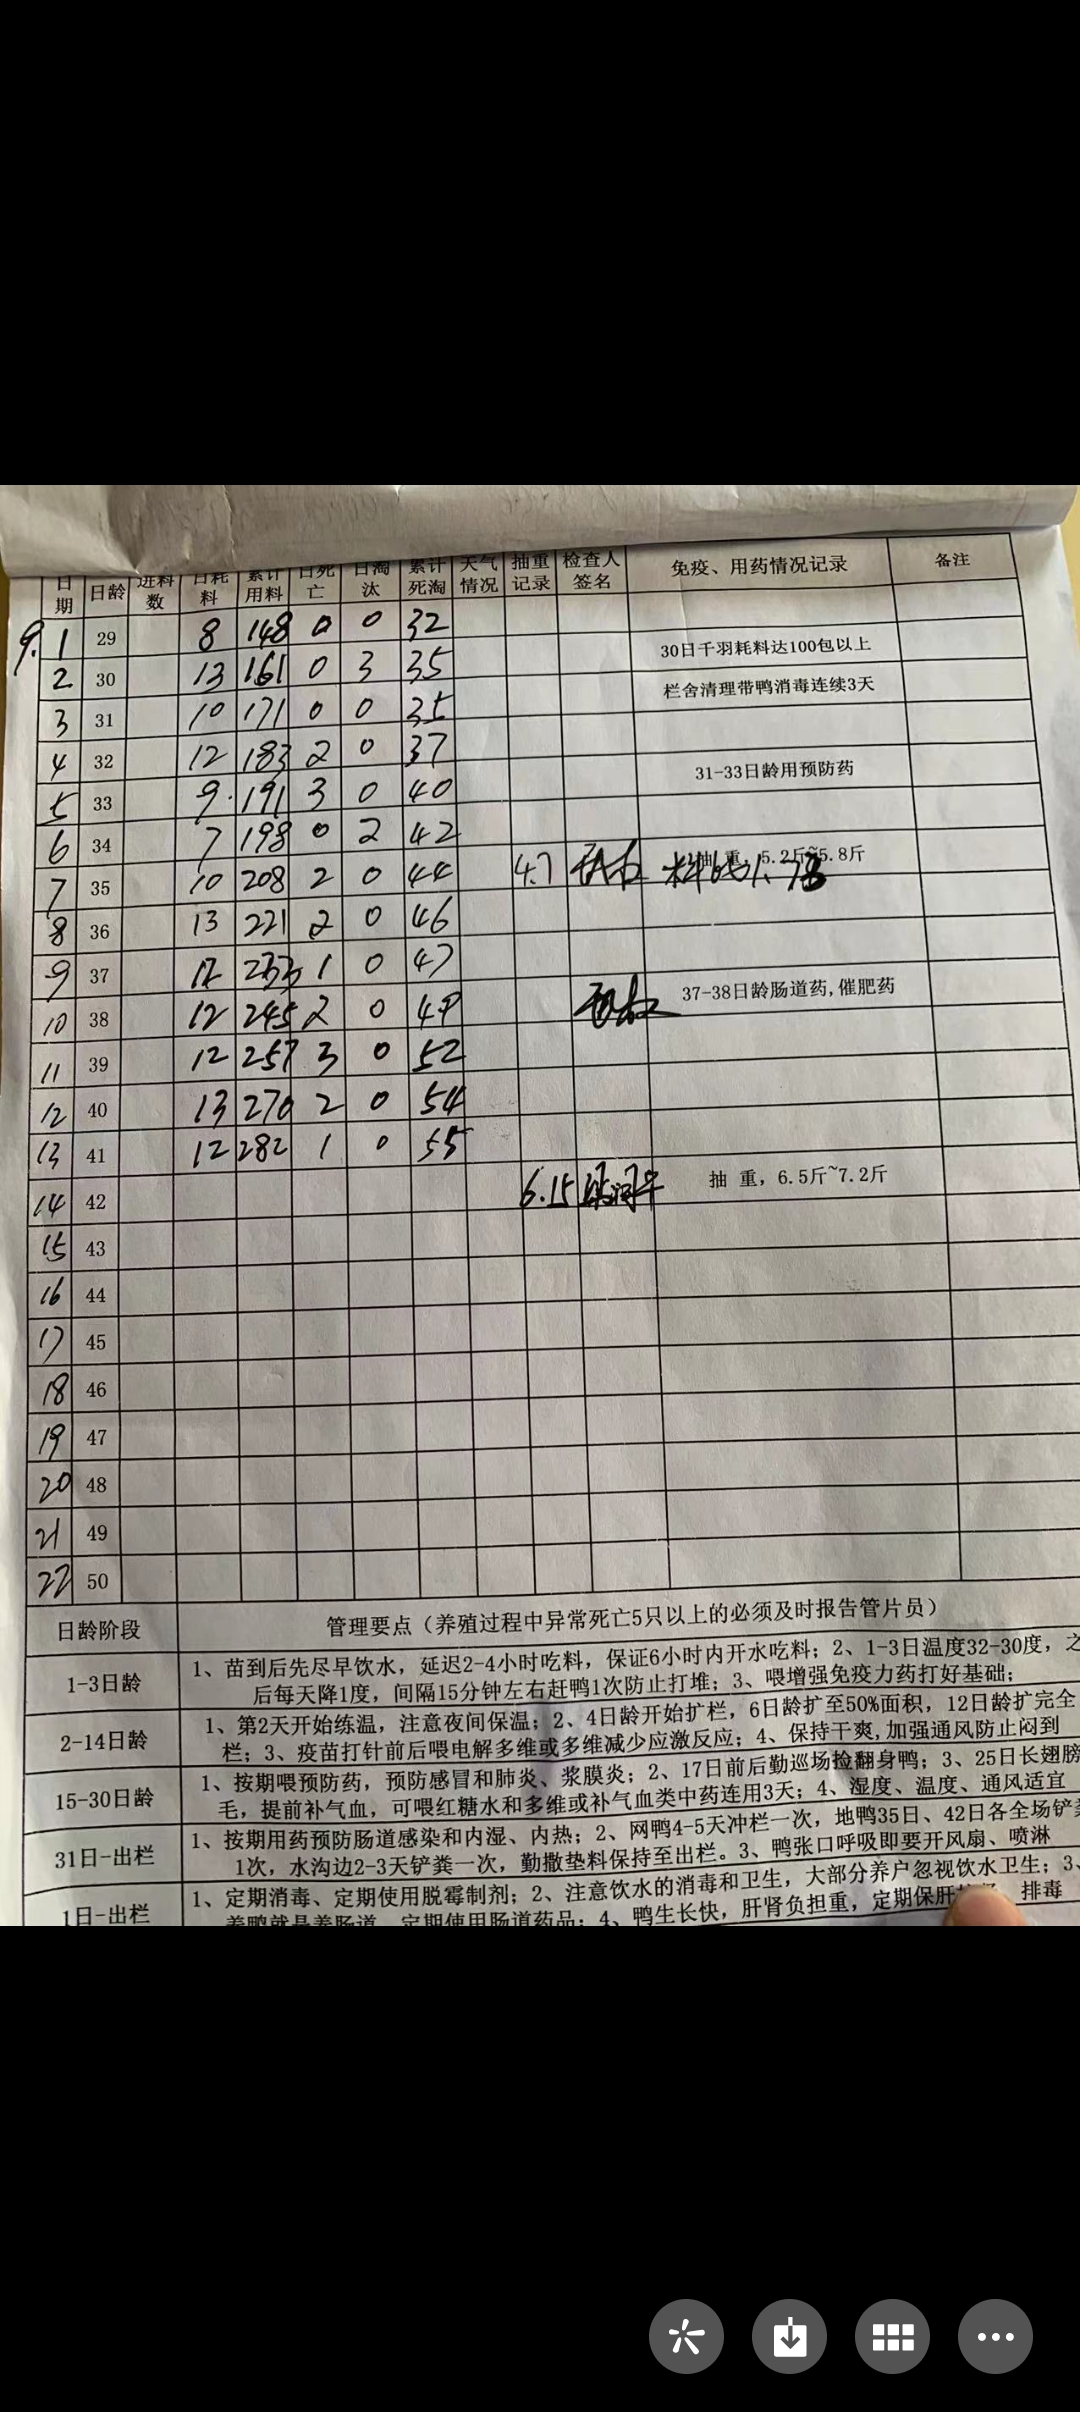 日期 日龄 进料数 日耗料 累计用料 日死亡 日淘汰 累计死淘 天气情况 抽重记录 检查人签名 免疫、用药情况记录 备注
9. 1 29 8 148 0 0 32
2 30 13 161 0 3 35 30日千羽耗料达100包以上
3 31 10 171 0 0 35 栏舍清理带鸭消毒连续3天
4 32 12 183 2 0 37
5 33 9 191 3 0 40 31-33日龄用预防药
6 34 7 198 0 2 42
7 35 10 208 2 0 44 4.7 抽 重, 5.2斤~5.8斤 料比1.78
8 36 13 221 2 0 46
9 37 12 233 1 0 47
10 38 12 245 2 0 49 37-38日龄肠道药,催肥药
11 39 12 257 3 0 52
12 40 13 270 2 0 54
13 41 12 282 1 0 55
14 42 6.15 抽 重, 6.5斤~7.2斤
15 43
16 44
17 45
18 46
19 47
20 48
21 49
22 50
日龄阶段 管理要点（养殖过程中异常死亡5只以上的必须及时报告管片员）
1-3日龄 1、苗到后先尽早饮水，延迟2-4小时吃料，保证6小时内开水吃料；2、1-3日温度32-30度，之
后每天降1度，间隔15分钟左右赶鸭1次防止打堆；3、喂增强免疫力药打好基础；
2-14日龄 1、第2天开始练温，注意夜间保温；2、4日龄开始扩栏，6日龄扩至50%面积，12日龄扩完全
栏；3、疫苗打针前后喂电解多维或多维减少应激反应；4、保持干爽,加强通风防止闷到
15-30日龄 1、按期喂预防药，预防感冒和肺炎、浆膜炎；2、17日前后勤巡场捡翻身鸭；3、25日长翅膀
毛，提前补气血，可喂红糖水和多维或补气血类中药连用3天；4、湿度、温度、通风适宜
31日-出栏 1、按期用药预防肠道感染和内湿、内热；2、网鸭4-5天冲栏一次，地鸭35日、42日各全场铲粪
1次，水沟边2-3天铲粪一次，勤撒垫料保持至出栏。3、鸭张口呼吸即要开风扇、喷淋
1日-出栏 1、定期消毒、定期使用脱霉制剂；2、注意饮水的消毒和卫生，大部分养户忽视饮水卫生；3、
养鸭就是养肠道，定期使用肠道药品；4、鸭生长快，肝肾负担重，定期保肝 排毒